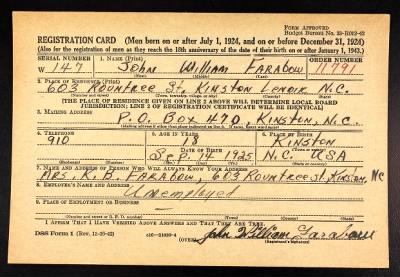 FORM APPROVED
Budget Bureau No. 33-R012-42
REGISTRATION CARD—(Men born on or after July 1, 1924, and on or before December 31, 1924)
(Also for the registration of men as they reach the 18th anniversary of the date of their birth on or after January 1, 1943.)
SERIAL NUMBER 1. NAME (Print) ORDER NUMBER
W 147 John William Farabow 11791
(First) (Middle) (Last)
2. PLACE OF RESIDENCE (Print)
603 Rountree St, Kinston Lenoir N.C.
(Number and street) (Town, township, village, or city) (County) (State)
[THE PLACE OF RESIDENCE GIVEN ON LINE 2 ABOVE WILL DETERMINE LOCAL BOARD
JURISDICTION; LINE 2 OF REGISTRATION CERTIFICATE WILL BE IDENTICAL]
3. MAILING ADDRESS
P.O. Box 490, Kinston, N.C.
[Mailing address if other than place indicated on line 2. If same, insert word same]
4. TELEPHONE 5. AGE IN YEARS 6. PLACE OF BIRTH
910 18 Kinston
DATE OF BIRTH (Town or county)
Sep. 14 1925 N.C. USA
(Exchange) (Number) (Mo.) (Day) (Yr.) (State or country)
7. NAME AND ADDRESS OF PERSON WHO WILL ALWAYS KNOW YOUR ADDRESS
Mrs. K.B. Farabow, 603 Rountree st, Kinston, NC
8. EMPLOYER'S NAME AND ADDRESS
Unemployed
9. PLACE OF EMPLOYMENT OR BUSINESS
(Number and street or R. F. D. number) (Town) (County) (State)
I AFFIRM THAT I HAVE VERIFIED ABOVE ANSWERS AND THAT THEY ARE TRUE.
DSS Form 1 (Rev. 11-16-42) (OVER) John William Farabow
(Registrant's signature)